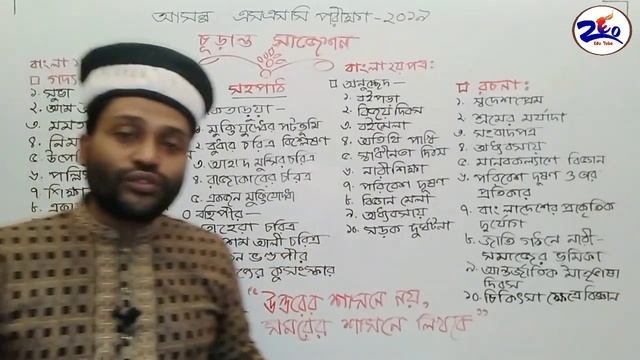 আসন্ন এসএসসি পরীক্ষা-২০২৯
চূড়ান্ত সাজেশন
বাংলা ১
গদ্য
১. সুভা
২. আম
৩. মমতা
৪. নিম
৬. পল্লি
৭. শিক্ষা
৮. একা
সহপাঠ
কাকতাড়ুয়া—
মুক্তিযুদ্ধের পটভূমি
২. বুধার চরিত্র বিশ্লেষণ
৩. আহাদ মুন্সির চরিত্র
৪. রাজাকারের চরিত্র
৫. একজন মুক্তিযোদ্ধা
বহিপীর—
তাহেরা চরিত্র
হাশেম আলী চরিত্র
ভণ্ডপীর
কুসংস্কার
বাংলা ২য় পত্র:
অনুচ্ছেদ—
১. বইপড়া
২. বিজয় দিবস
৩. বইমেলা
৪. অতিথি পাখি
৫. স্বাধীনতা দিবস
৬. নারীশিক্ষা
৭. পরিবেশ দূষণ
৮. বিজ্ঞান মেলা
৯. অধ্যবসায়
১০. সড়ক দুর্ঘটনা
রচনা:
১. স্বদেশপ্রেম
২. শ্রমের মর্যাদা
৩. সংবাদপত্র
৪. অধ্যবসায়
৫. মানবকল্যাণে বিজ্ঞান
৬. পরিবেশ দূষণ ও তার
প্রতিকার
৭. বাংলাদেশের প্রাকৃতিক
দুর্যোগ
৮. জাতি গঠনে নারী-
সমাজের ভূমিকা
৯. আন্তর্জাতিক মাতৃভাষা
দিবস
১০. চিকিৎসা ক্ষেত্রে বিজ্ঞান
"উত্তরের শাসনে নয়,
সময়ের শাসনে লিখবে"
Edu Tube